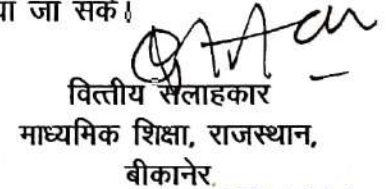 जा सके।
वित्तीय सलाहकार
माध्यमिक शिक्षा, राजस्थान,
बीकानेर